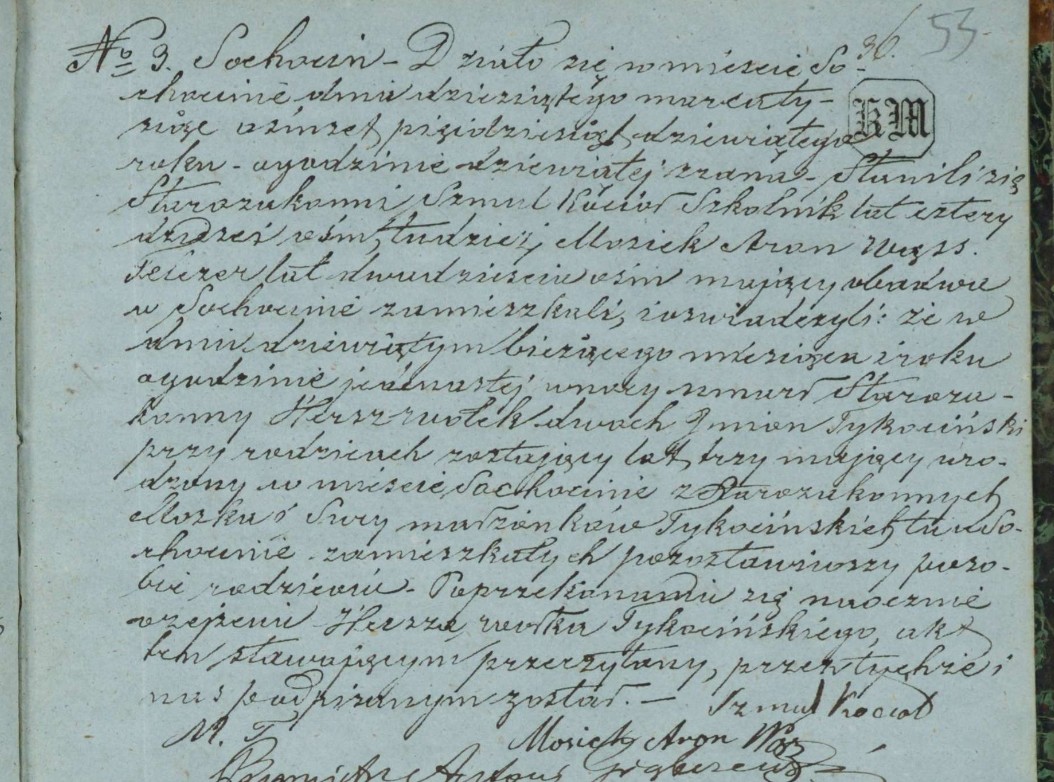 36. 53.
№ 3. Sochocin – Działo się w mieście So-
chocinie dnia dziesiątego marca ty-
siąc ośmset pięćdziesiąt dziewiątego
KM
roku – o godzinie dziewiątej zrana – Stawili się
Starozakonni Szmul Kocioł Szkolnik lat cztery
dzieści ośm, tudzież Mosiek Aron
Felczer lat dwadzieścia ośm mający obadwa
w Sochocinie zamieszkali, i oswiadczyli: że w
dniu dziewiątym bieżącego miesiąca i roku
o godzinie jedenastej w nocy umarł Staroza-
konny Hersz Wolek dwoch Imion Tykociński
przy rodzicach zostający lat trzy mający uro-
dzony w mieście Sochocinie z Starozakonnych
Moszka i Sury małżonków Tykocińskich tu w So-
chocinie zamieszkałych pozostawiwszy po so-
bie rodziców – Po przekonaniu się naocznie
o zejściu Hersza Wolka Tykocińskiego, akt
ten stawającym przeczytany, przez tychże i
nas podpisanym został. – Szmul Kocioł
M. T.
Mosiek Aron